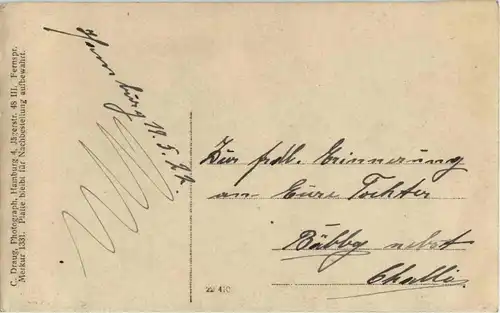 C. Draug, Photograph, Hamburg 4, Jägerstr. 48 III. Fernspr.
Merkur 1331. Platte bleibt für Nachbestellung aufbewahrt.
Hamburg 11.5.22.
Zur frdl. Erinnerung
an Eure Tochter
Bäbby nebst
Challi.